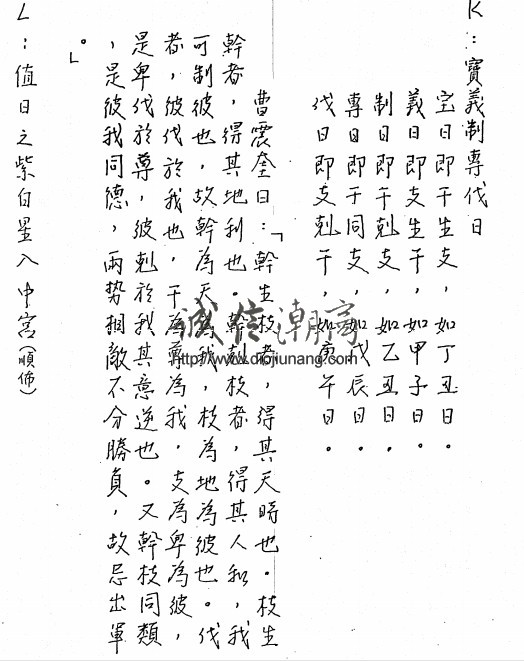 K：寶義制專伐日
宝日即干生支，如丁丑日。
義日即支生干，如甲子日。
制日即干剋支，如乙丑日。
專日即干同支，如戊辰日。
伐日即支剋干，如庚午日。
曹震奎曰：「幹生枝者，得其天時也。枝生
幹者，得其地利也。幹剋枝者，得其人和，我
可制彼也，故幹為天為我，枝為地為彼也。伐
者，彼伐於我也，干為尊為我，支為卑為彼，
是卑伐於尊，彼剋於我其意逆也。又幹枝同類
，是彼我同德，兩势相敵不分勝負，故忌出軍
。」
L：值日之紫白星入中宮（順佈）
誠信潮高
http://www.diojiunang.com